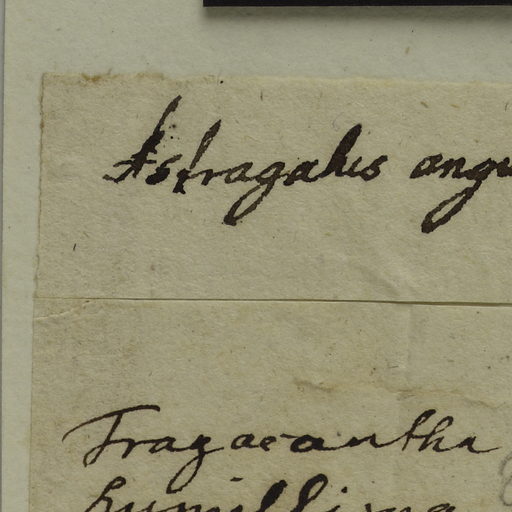 Astragalus angu
Tragacantha
humillima